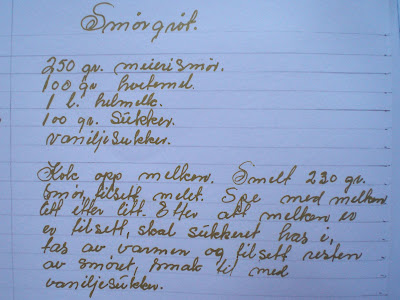 Smørgrøt.
250 gr. meierismør.
100 gr. hvetemel.
1 l. helmelk.
100 gr. sukker.
vaniljesukker.
Kok opp melken. Smelt 230 gr.
smør, tilsett melet. Spe med melken
litt etter litt. Etter att melken er
er tilsett, skal sukkeret has i,
tas av varmen og tilsett resten
av smøret, smak til med
vaniljesukker.